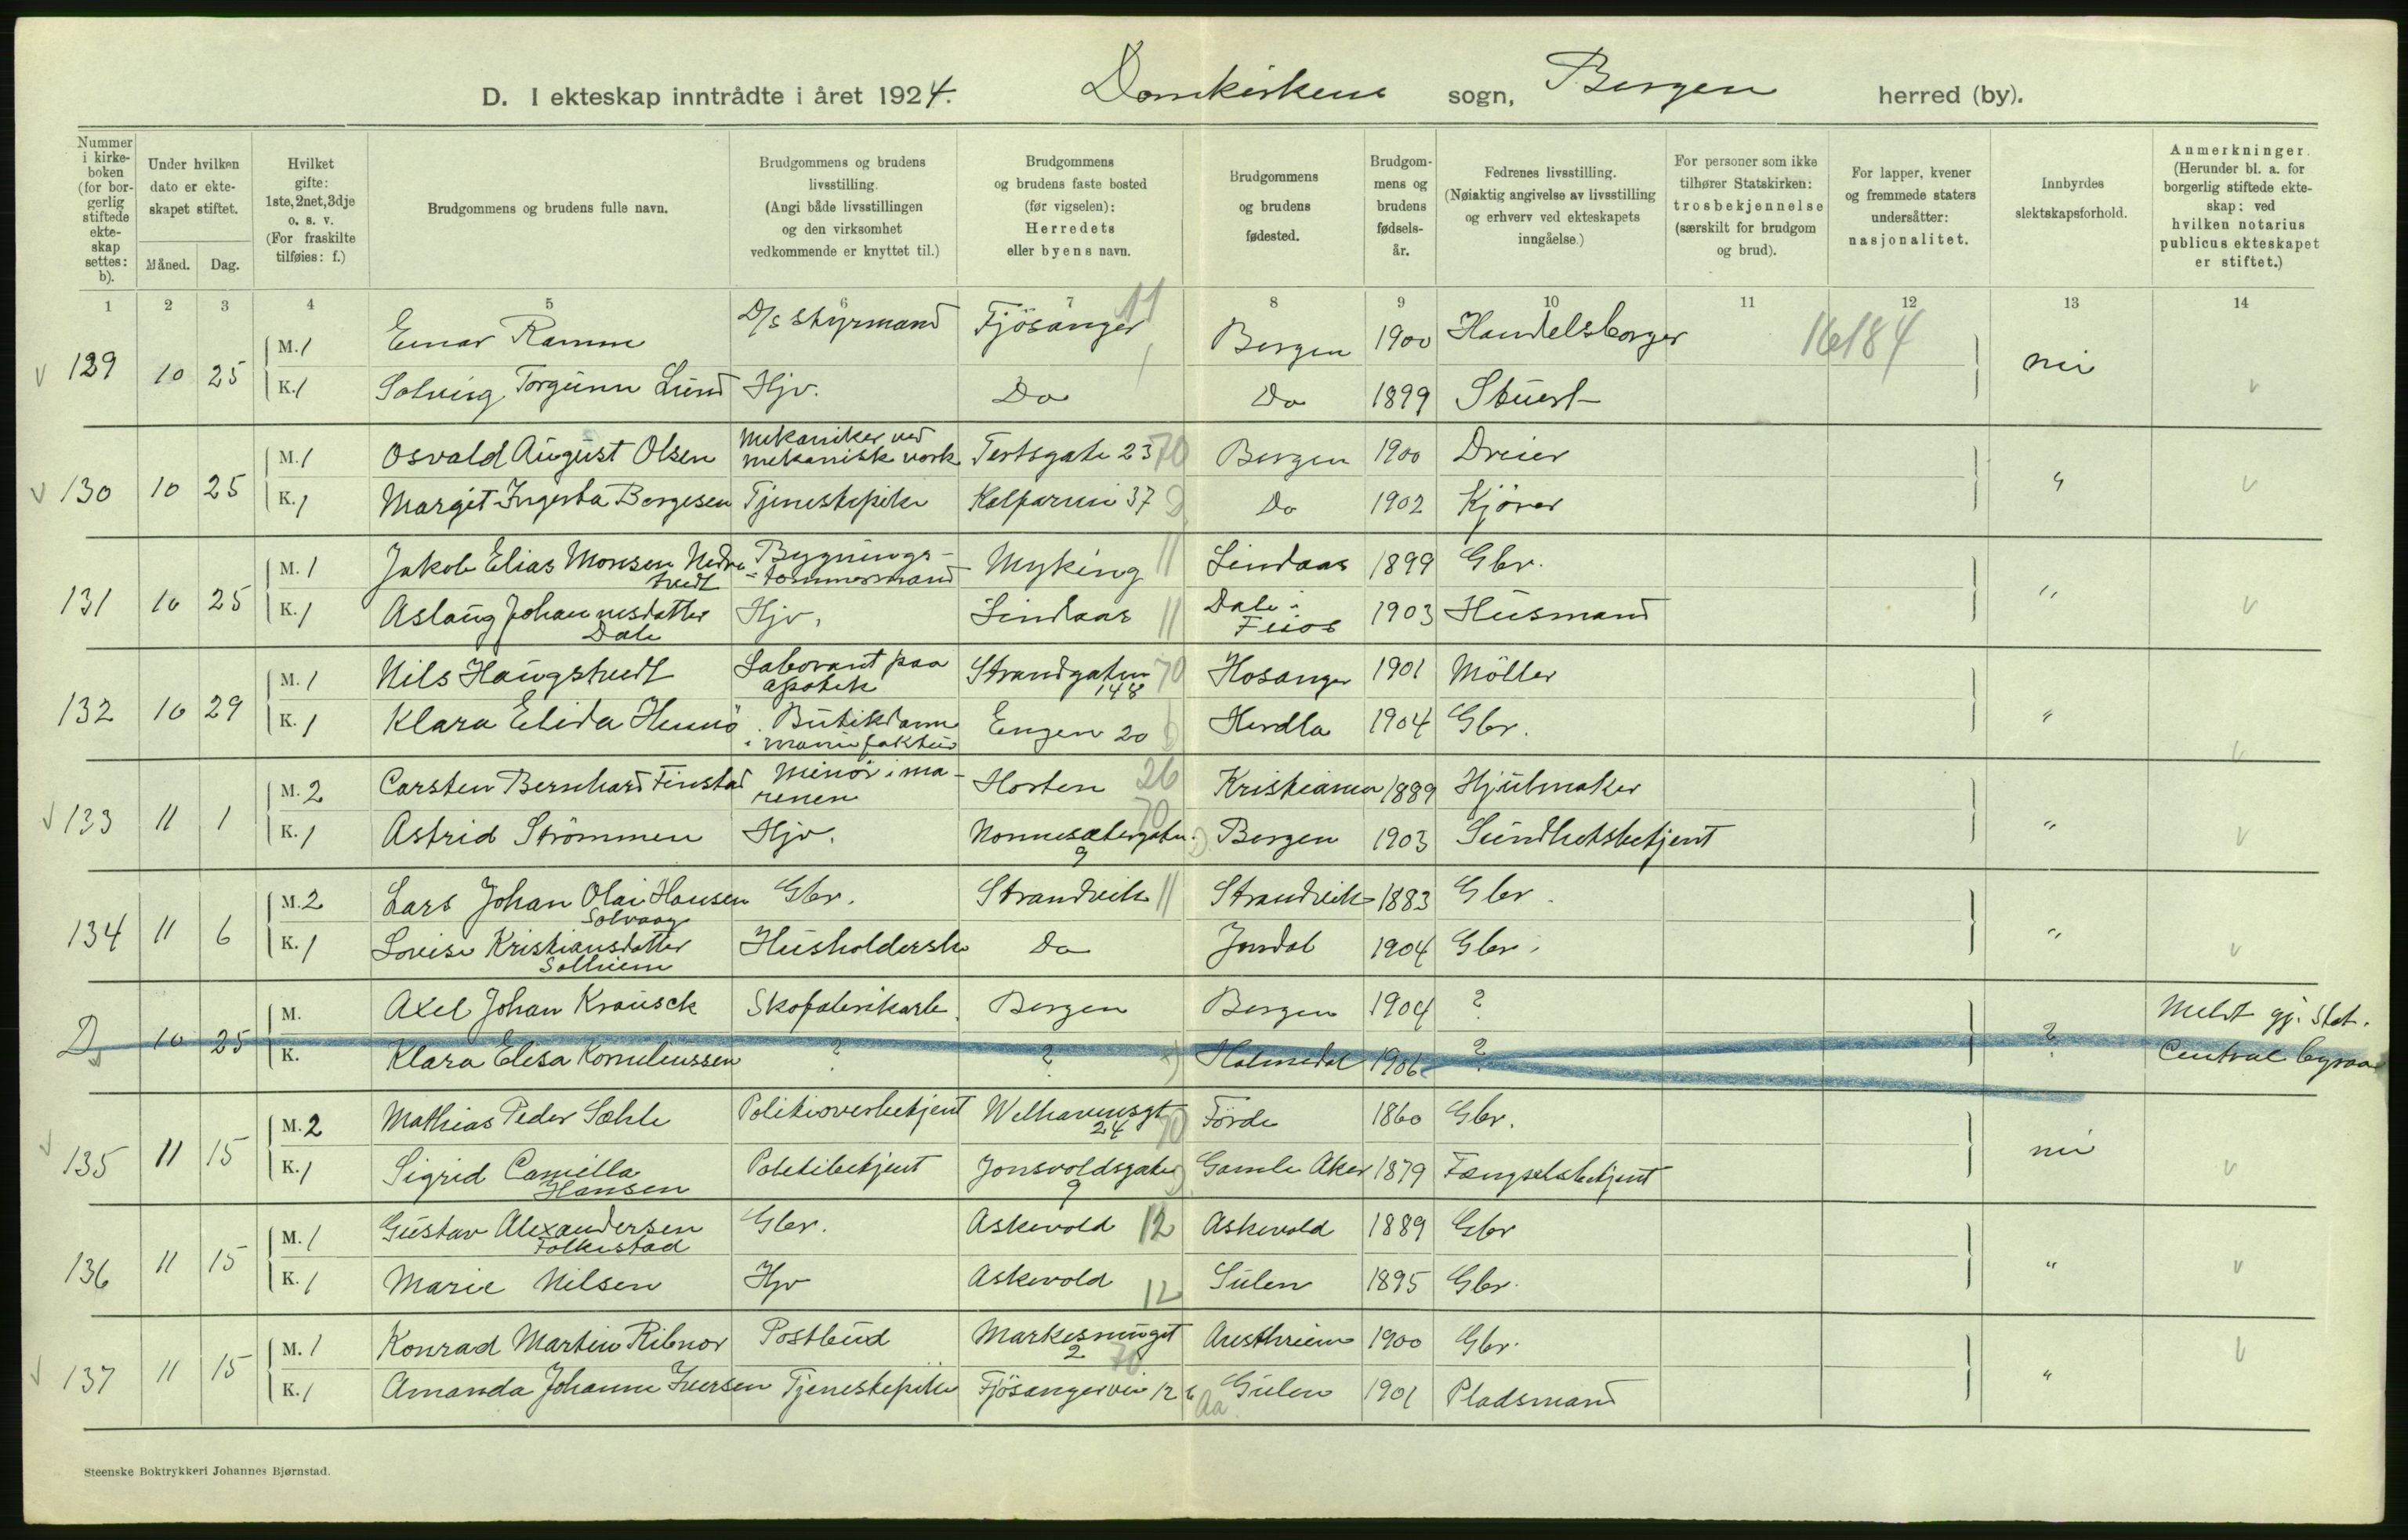 D. I ekteskap inntrådte i året 1924. Domkirkens sogn, Bergen herred (by).
Nummer i kirke-boken (for bor-gerlig stiftede ekte-skap settes: b).
Under hvilken dato er ekte-skapet stiftet.
Måned. Dag.
Hvilket gifte: 1ste, 2net, 3dje o. s. v. (For fraskilte tilføies: f.)
Brudgommens og brudens fulle navn.
Brudgommens og brudens livsstilling. (Angi både livsstillingen og den virksomhet vedkommende er knyttet til.)
Brudgommens og brudens faste bosted (før vigselen): Herredets eller byens navn.
Brudgommens og brudens fødested.
Brudgom-mens og brudens fødsels-år.
Fedrenes livsstilling. (Nøiaktig angivelse av livsstilling og erhverv ved ekteskapets inngåelse.)
For personer som ikke tilhører Statskirken: trosbekjennelse (særskilt for brudgom og brud).
For lapper, kvener og fremmede staters undersåtter: nasjonalitet.
Innbyrdes slektskapsforhold.
Anmerkninger. (Herunder bl. a. for borgerlig stiftede ekte-skap: ved hvilken notarius publicus ekteskapet er stiftet.)
1 2 3 4 5 6 7 8 9 10 11 12 13 14
129 10 25 M. 1 Einar Ramm D/s styrmand Fjösanger 11 Bergen 1900 Handelsborger 16184 nei
K. 1 Solveig Torgunn Lund Hjv. Do Do 1899 Stuert
130 10 25 M. 1 Osvald August Olsen Mekaniker ved mekanisk verk Tertsgate 23 70 Bergen 1900 Dreier "
K. 1 Margit Ingerba Bergesen Tjenestepike Kalfarvei 37 Do 1902 Kjörer
131 10 25 M. 1 Jakob Elias Monsen Nedre tvedt Bygnings-tømmermand Myking 11 Lindaas 1899 Gbr. "
K. 1 Aslaug Johannesdatter Dale Hjv. Lindaas 11 Dale i Feios 1903 Husmand
132 10 29 M. 1 Nils Haugstvedt Laborant paa apotek Strandgaten 148 70 Hosanger 1901 Möller "
K. 1 Klara Elida Hennö Butikdame i manufaktur Engen 20 Herdla 1904 Gbr.
133 11 1 M. 2 Carsten Bernhard Finstad Minör i marenen Horten 26 Kristiania 1889 Hjulmaker "
K. 1 Astrid Strömmen Hjv. Nonnesætergaten 9 70 Bergen 1903 Sundhetsbetjent
134 11 6 M. 2 Lars Johan Olai Hansen Solvaag Gbr. Strandvik 11 Strandvik 1883 Gbr. "
K. 1 Lovise Kristiansdatter Solheim Husholderske Do Jondal 1904 Gbr.
D 10 25 M. Axel Johan Krausck Skofabrikarb. Bergen Bergen 1904 ? ? Meldt gj. Stat.
K. Klara Elisa Korneliussen ? ? Holmedal 1906 ? Central byraa
135 11 15 M. 2 Mathias Peder Sæhle Politioverbetjent Welhavensgt 24 70 Förde 1860 Gbr. nei
K. 1 Sigrid Camilla Hansen Politibetjent Jonsvoldsgaten 9 Gamle Aker 1879 Fængselsbetjent
136 11 15 M. 1 Gustav Alexandersen Folkestad Gbr. Askevold 12 Askevold 1889 Gbr "
K. 1 Marie Nilsen Hjv Askevold 12 Sulen 1895 Gbr.
137 11 15 M. 1 Konrad Martin Ribnor Postbud Markesmuget 2 70 Austhreim 1900 Gbr. "
K. 1 Amanda Johanne Iversen Tjenestepike Fjösangervei 126 Aa Gulen 1901 Pladsmand
Steenske Boktrykkeri Johannes Bjørnstad.